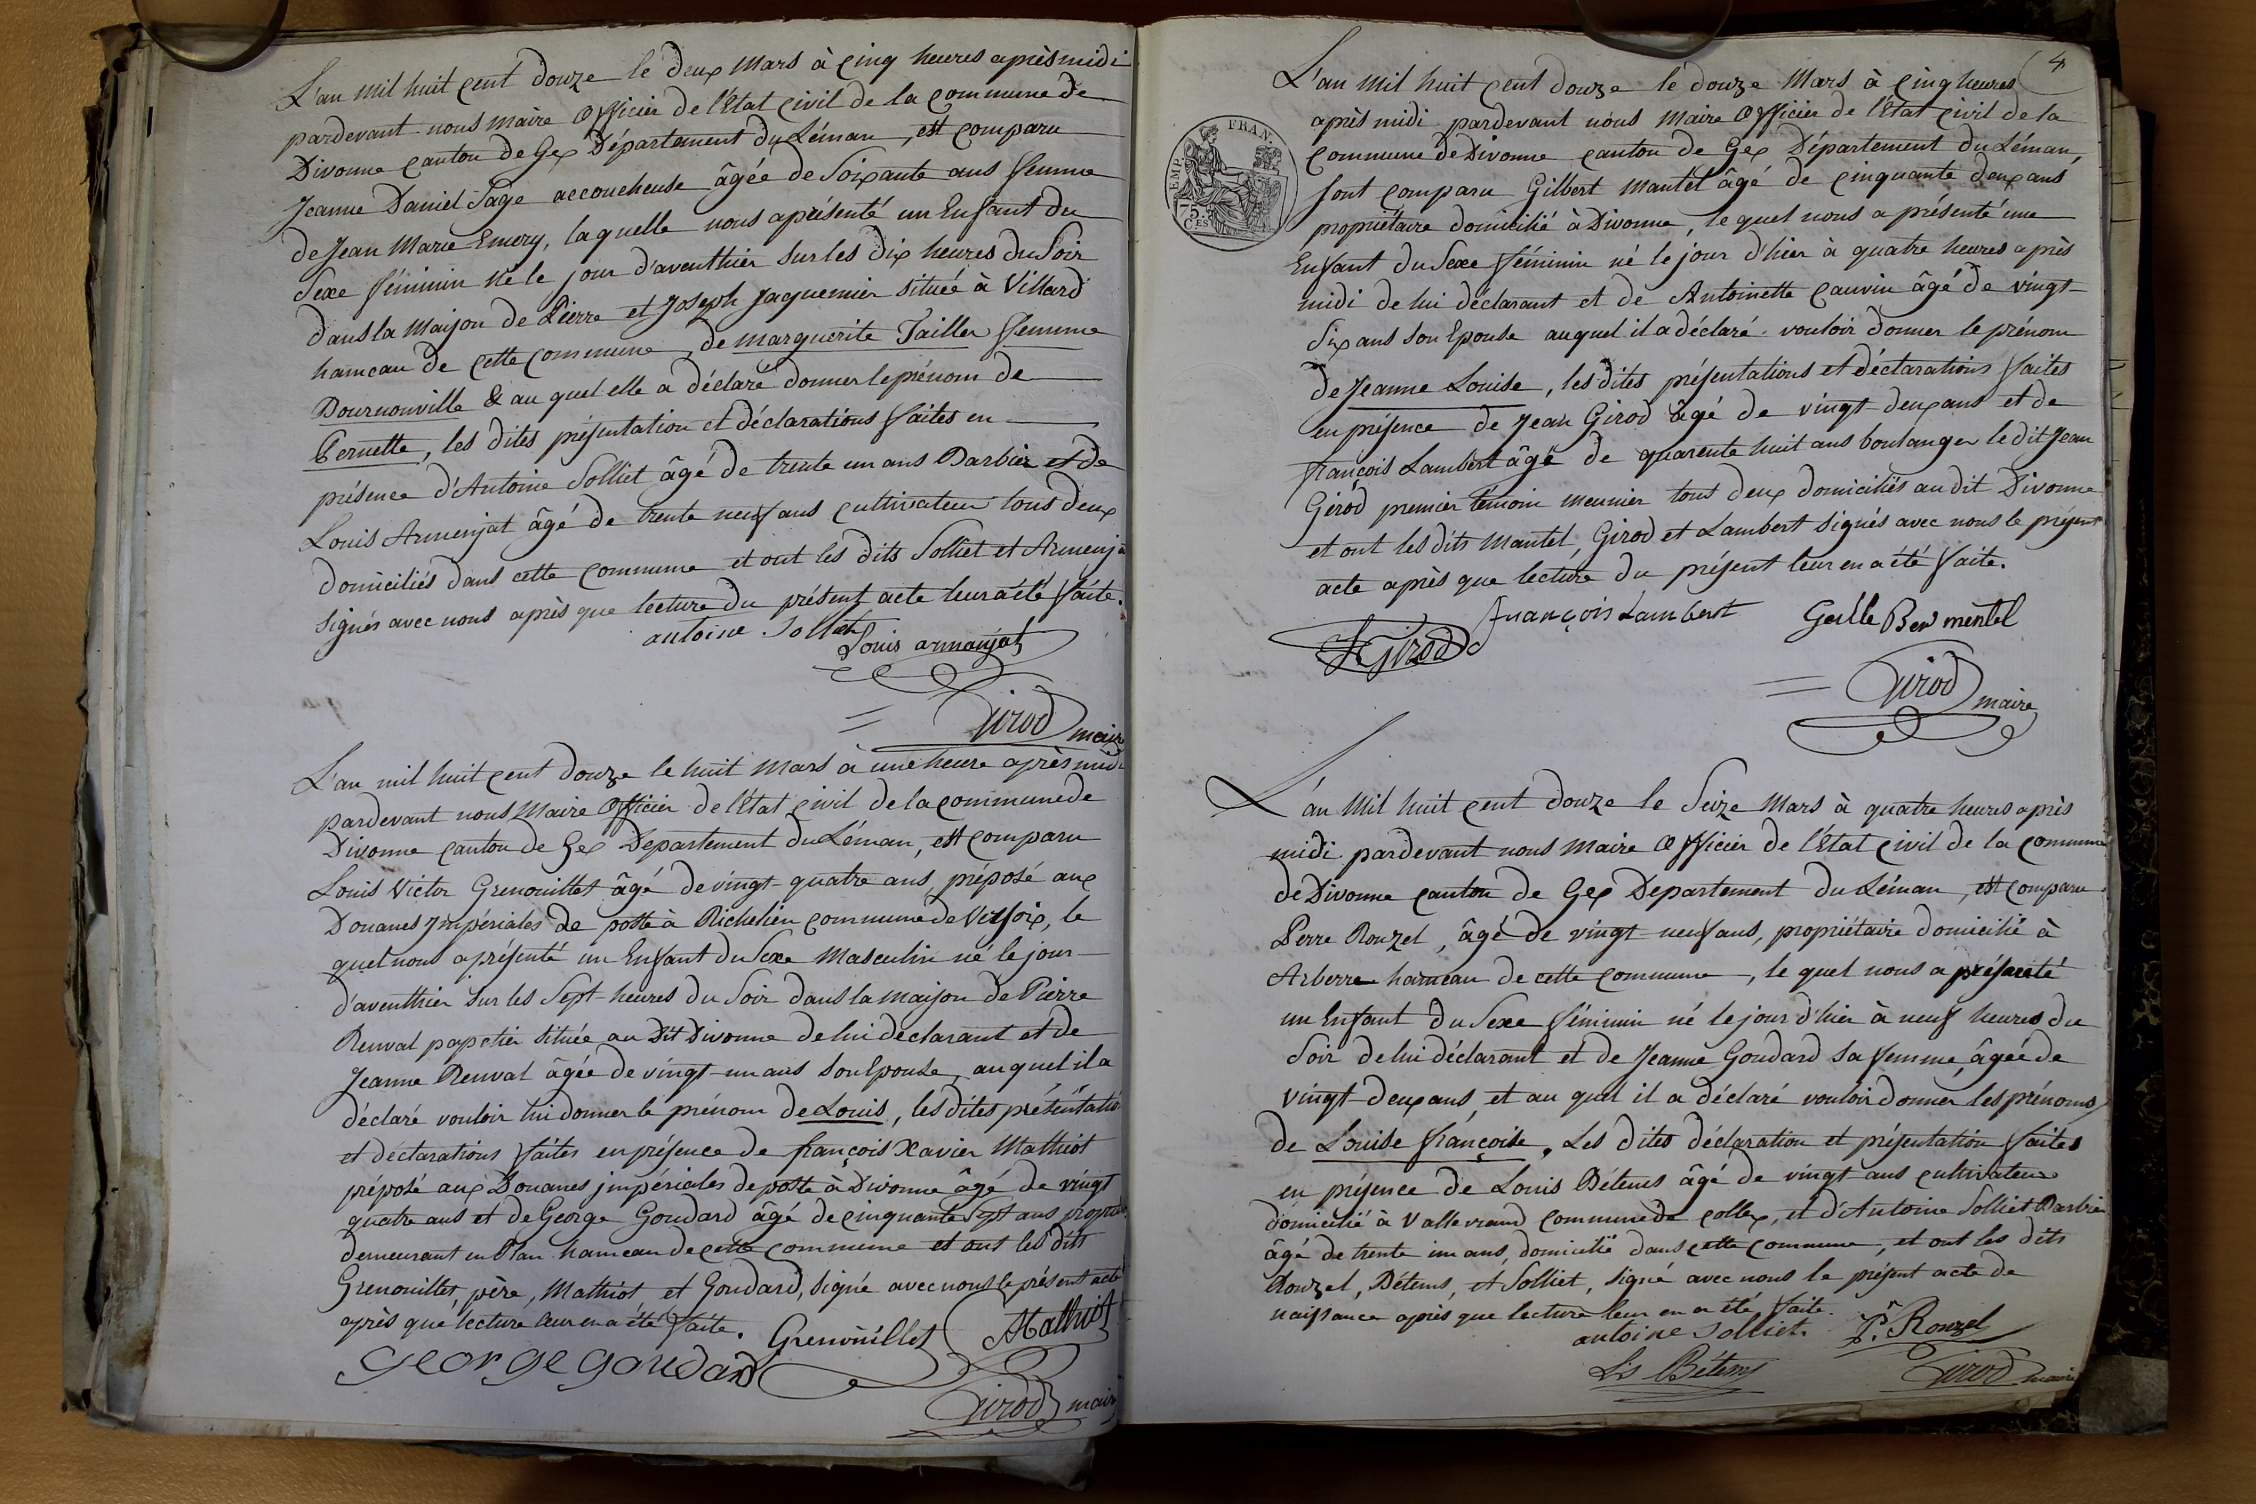 L'an mil huit cent douze le deux Mars à cinq heures après midi
pardevant nous maire Officier de l'Etat civil de la commune de
Divonne canton de Gex Département du Léman, est comparu
Jeanne Daniel Sage accoucheuse âgée de Soixante ans femme
de Jean Marie Emery, laquelle nous a présenté un Enfant du
Sexe féminin né le jour d'aventhier sur les dix heures du Soir
dans la Maison de Pierre et Joseph Jaquemier située à Villard
hameau de cette commune, de marguerite Tailler femme
Dournonville & au quel elle a déclaré donner le prénom de
Pernette, les dites présentation et déclarations faites en
présence d'Antoine Solliet âgé de trente un ans Barbier et de
Louis Armenjat âgé de trente neuf ans cultivateur tous deux
domiciliés dans cette commune et ont les dits Solliet et Armenja
signés avec nous après que lecture du présent acte leur a été faite.
antoine Solliet
Louis armanjat
Girod maire
L'an mil huit cent douze le huit Mars à une heure après midi
pardevant nous Maire Officier de l'Etat civil de la commune de
Divonne canton de Gex Departement du Léman, est comparu
Louis Victor Grenouillet âgé de vingt-quatre ans, préposé aux
Douanes Impériales de poste à Richelieu commune de Versoix, le
quel nous a présenté un Enfant du Sexe Masculin né le jour
d'aventhier sur les Sept heures du Soir dans la maison de Pierre
Renval papetier située au dit Divonne de lui déclarant et de
Jeanne Renval âgée de vingt-un ans son Epouse, au quel il a
déclaré vouloir lui donner le prénom de Louis, les dites présentatio
et déclarations faites en présence de françois Xavier Mathiot
préposé aux Douanes impériales de poste à Divonne âgé de vingt
quatre ans et de George Goudard âgé de cinquante Sept ans
demeurant en Plan hameau de cette commune et ont les dits
Grenouillet, père, Mathiot et Goudard, signé avec nous le présent acte
après que lecture leur en a été faite. Grenouillet Mathiot
George goudard
Girod maire
4
L'an mil huit cent douze le douze Mars à cinq heures
après midi pardevant nous Maire Officier de l'Etat civil de la
commune de Divonne canton de Gex Département du Léman,
sont comparu Gilbert Mantel âgé de cinquante deux ans
propriétaire domicilié à Divonne, le quel nous a présenté une
Enfant du Sexe féminin né le jour d'hier à quatre heures après
midi de lui déclarant et de Antoinette Cauvin âgé de vingt-
Six ans son Epouse auquel il a déclaré vouloir donner le prénom
de Jeanne Louise, les dites présentations et déclarations faites
en présence de Jean Girod âgé de vingt-deux ans et de
françois Lambert âgé de quarente huit ans boulanger le dit Jean
Girod premier témoin meunier tous deux domiciliés au dit Divonne
et ont les dits Mantel, Girod et Lambert signés avec nous le présent
acte après que lecture du présent leur en a été faite.
françois Lambert
Girod
Girod maire
EMP. FRAN.
75. CES
L'an Mil huit cent douze le Seize Mars à quatre heures après
midi pardevant nous Maire Officier de l'Etat civil de la commune
de Divonne canton de Gex Departement du Léman, est comparu
Pierre Rouzel, âgé de vingt-neuf ans, propriétaire domicilié à
Arberre hameau de cette commune, le quel nous a présenté
un Enfant du Sexe féminin né le jour d'hier à neuf heures du
Soir de lui déclarant et de Jeanne Goudard sa femme, âgée de
vingt deux ans, et au quel il a déclaré vouloir donner les prénoms
de Louise françoise. Les dites déclaration et présentation faites
en présence de Louis Bétems âgé de vingt ans cultivateur
domicilié à commune de collex, et d'Antoine Solliet Barbier
âgé de trente un ans, domicilié dans cette commune, et ont les dits
Rouzel, Bétems, et Solliet, signé avec nous le présent acte de
naissance après que lecture leur en a été faite.
antoine solliet. Pr. Rouzel
Ls Bétems
Girod maire